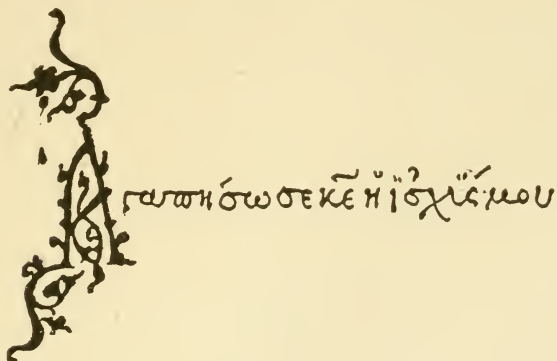 Αγαπήσω σε κε̅ ἡ ἰσχύς μου